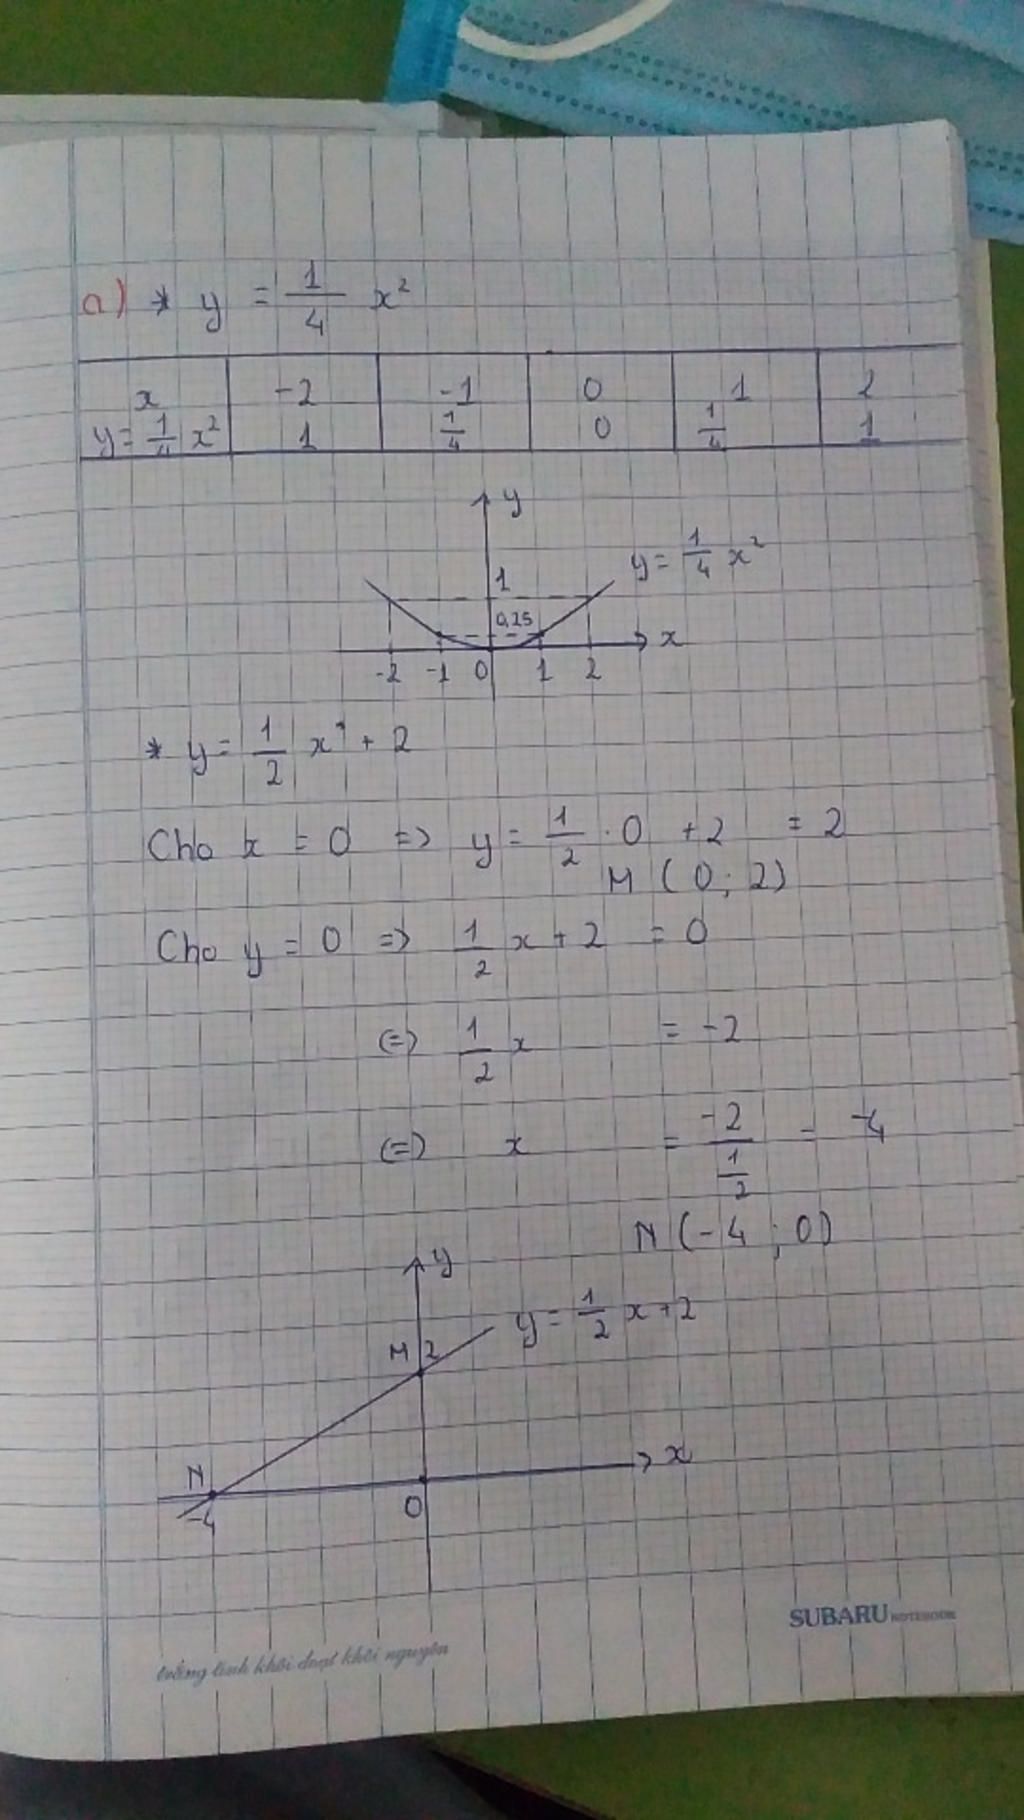 a) * y = 1/4 x²
x -2 -1 0 1 2
y = 1/4 x² 1 1/4 0 1/4 1
y
y = 1/4 x²
1
0,25
x
-2 -1 0 1 2
* y = 1/2 x¹ + 2
Cho x = 0 => y = 1/2 . 0 + 2 = 2
M (0 ; 2)
Cho y = 0 => 1/2 x + 2 = 0
(=) 1/2 x = -2
(=) x = -2/(1/2) = -4
N (-4 ; 0)
y
y = 1/2 x + 2
M 2
N x
-4 O
SUBARU NOTEBOOK
trắng tinh khôi đoạt khôi nguyên